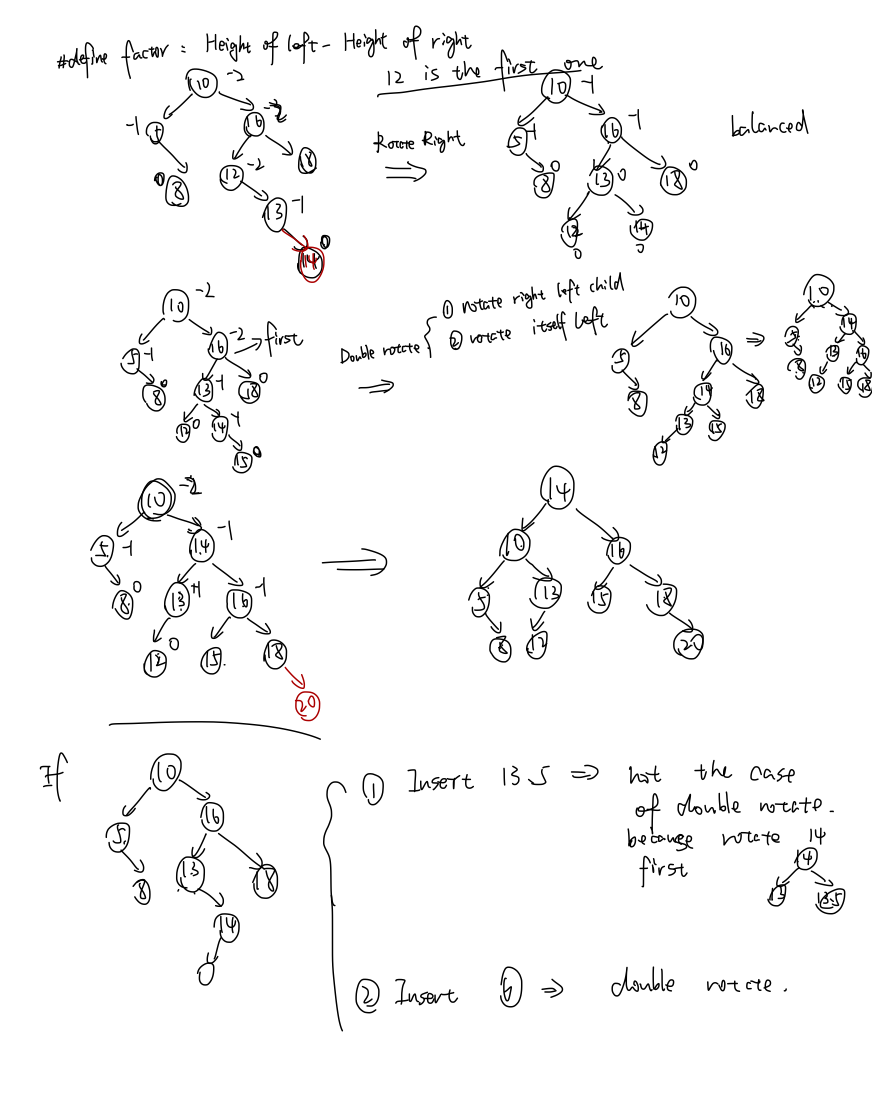 #define factor : Height of left - Height of right
12 is the first one
10 -2
-1 16
0 8 12 -2 18
13 -1
14 0
Rotate Right
⇒
10 -1
5 -1 16 -1
8 0 13 0 18 0
12 14
0 0
balanced
10 -2
5 -1 16 -2 → first
8 0 13 -1 18 0
12 0 14 -1
15 0
Double rotate
⇒
① rotate right left child
② rotate itself left
10
5 16
8 14 18
13 15
12
⇒
10
5 14
8 13 16
12 15 18
10 -2
5 -1 14 -1
8 0 13 +1 16 -1
12 0 15 18
20
⇒
14
10 16
5 13 15 18
8 12 20
If
10
5 16
8 13 18
14
① Insert 13.5 ⇒ not the case
of double rotate.
because rotate 14
first
14
13 13.5
② Insert 6 ⇒ double rotate.